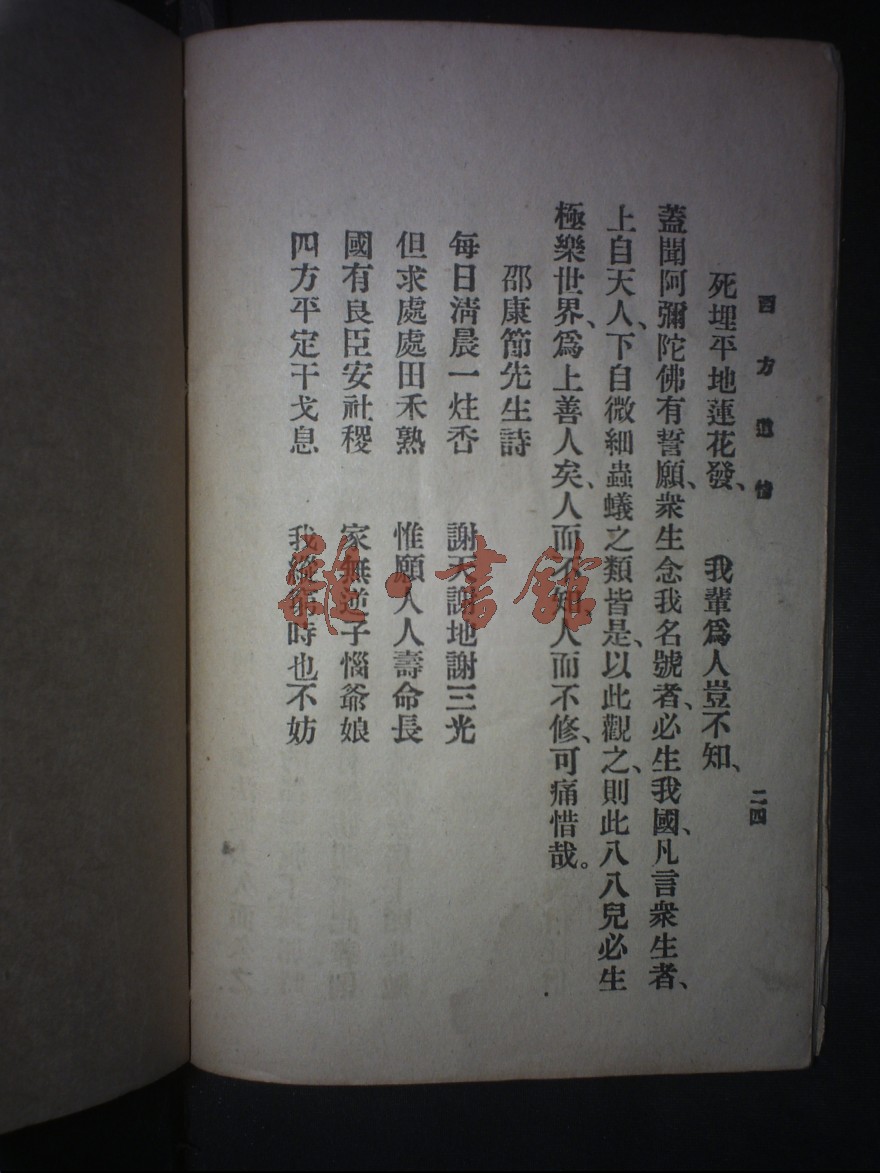 西方道情
二四
死埋平地蓮花發、　我輩爲人豈不知、
蓋聞阿彌陀佛有誓願、衆生念我名號者、必生我國、凡言衆生者、
上自天人、下自微細蟲蟻之類皆是、以此觀之、則此八八兒必生
極樂世界、爲上善人矣、人而不知、人而不修、可痛惜哉。
邵康節先生詩
每日淸晨一炷香　謝天謝地謝三光
但求處處田禾熟　惟願人人壽命長
國有良臣安社稷　家無逆子惱爺娘
四方平定干戈息　我縱貧時也不妨
雜·書館